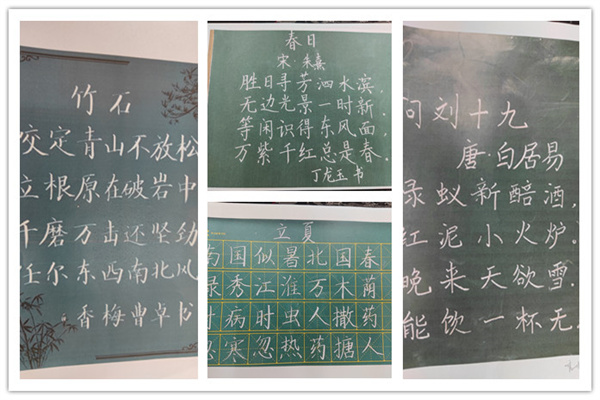 竹石
咬定青山不放松
立根原在破岩中
千磨万击还坚劲
任尔东西南北风
香梅曹卓书
春日
宋·朱熹
胜日寻芳泗水滨,
无边光景一时新。
等闲识得东风面
万紫千红总是春。
丁龙玉书
立夏
南国似暑北国春
绿秀江淮万木荫
时病时虫人撒药
忽寒忽热药搪人
问刘十九
唐·白居易
绿蚁新醅酒,
红泥小火炉。
晚来天欲雪,
能饮一杯无